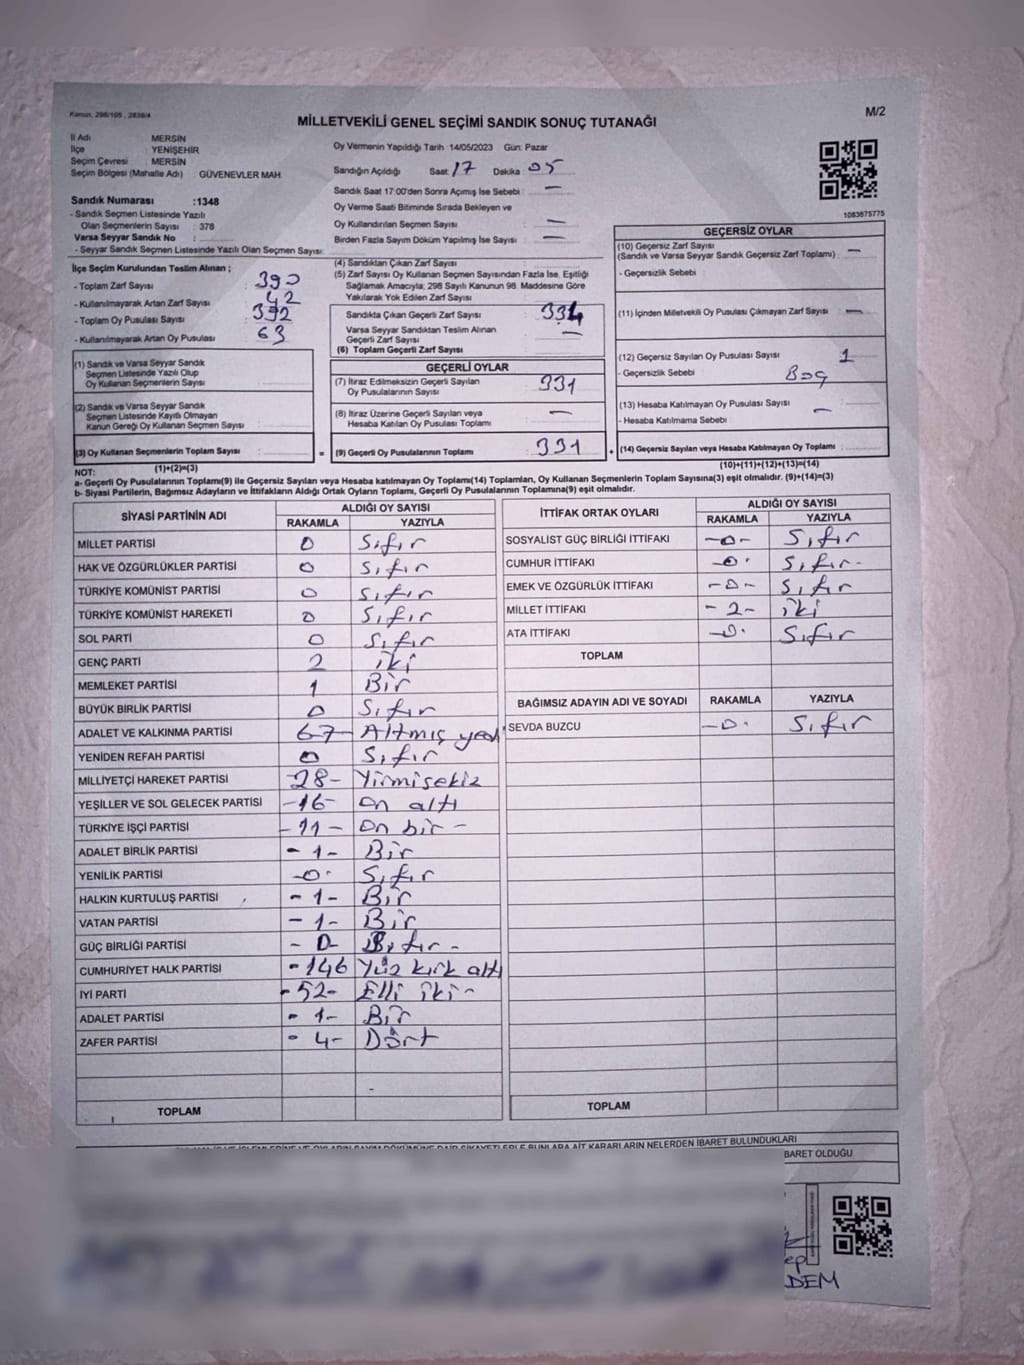 Kanun, 298/105 , 2839/4
M/2
MİLLETVEKİLİ GENEL SEÇİMİ SANDIK SONUÇ TUTANAĞI
İl Adı MERSİN
İlçe : YENİŞEHİR
Seçim Çevresi : MERSİN
Seçim Bölgesi (Mahalle Adı) GÜVENEVLER MAH.
Sandık Numarası :1348
- Sandık Seçmen Listesinde Yazılı
Olan Seçmenlerin Sayısı : 378
Varsa Seyyar Sandık No :
- Seyyar Sandık Seçmen Listesinde Yazılı Olan Seçmen Sayısı:
Oy Vermenin Yapıldığı Tarih :14/05/2023 Gün: Pazar
Sandığın Açıldığı Saat: 17 Dakika : 05
Sandık Saat 17:00'den Sonra Açımış İse Sebebi : —
Oy Verme Saati Bitiminde Sırada Bekleyen ve
Oy Kullandırılan Seçmen Sayısı : —
Birden Fazla Sayım Döküm Yapılmış İse Sayısı : —
1083675775
İlçe Seçim Kurulundan Teslim Alınan ;
- Toplam Zarf Sayısı : 390
- Kullanılmayarak Artan Zarf Sayısı : 42
- Toplam Oy Pusulası Sayısı : 392
- Kullanılmayarak Artan Oy Pusulası : 63
(1) Sandık ve Varsa Seyyar Sandık
Seçmen Listesinde Yazılı Olup
Oy Kullanan Seçmenlerin Sayısı :
(2) Sandık ve Varsa Seyyar Sandık
Seçmen Listesinde Kayıtlı Olmayan
Kanun Gereği Oy Kullanan Seçmen Sayısı :
(3) Oy Kullanan Seçmenlerin Toplam Sayısı :
(1)+(2)=(3)
(4) Sandıktan Çıkan Zarf Sayısı :
(5) Zarf Sayısı Oy Kullanan Seçmen Sayısından Fazla İse, Eşitliği
Sağlamak Amacıyla; 298 Sayılı Kanunun 98. Maddesine Göre
Yakılarak Yok Edilen Zarf Sayısı :
Sandıkta Çıkan Geçerli Zarf Sayısı : 334
Varsa Seyyar Sandıktan Teslim Alınan
Geçerli Zarf Sayısı : —
(6) Toplam Geçerli Zarf Sayısı :
GEÇERLİ OYLAR
(7) İtiraz Edilmeksizin Geçerli Sayılan
Oy Pusulalarının Sayısı : 331
(8) İtiraz Üzerine Geçerli Sayılan veya
Hesaba Katılan Oy Pusulası Toplamı : —
= (9) Geçerli Oy Pusulalarının Toplamı : 331
GEÇERSİZ OYLAR
(10) Geçersiz Zarf Sayısı
(Sandık ve Varsa Seyyar Sandık Geçersiz Zarf Toplamı) : —
- Geçersizlik Sebebi :
(11) İçinden Milletvekili Oy Pusulası Çıkmayan Zarf Sayısı : —
(12) Geçersiz Sayılan Oy Pusulası Sayısı : 1
- Geçersizlik Sebebi :
(13) Hesaba Katılmayan Oy Pusulası Sayısı : —
- Hesaba Katılmama Sebebi :
+ (14) Geçersiz Sayılan veya Hesaba Katılmayan Oy Toplamı :
(10)+(11)+(12)+(13)=(14)
NOT:
a- Geçerli Oy Pusulalarının Toplamı(9) ile Geçersiz Sayılan veya Hesaba Katılmayan Oy Toplamı(14) Toplamları, Oy Kullanan Seçmenlerin Toplam Sayısına(3) eşit olmalıdır. (9)+(14)=(3)
b- Siyasi Partilerin, Bağımsız Adayların ve İttifakların Aldığı Ortak Oyların Toplamı, Geçerli Oy Pusulalarının Toplamına(9) eşit olmalıdır.
SİYASİ PARTİNİN ADI ALDIĞI OY SAYISI
RAKAMLA YAZIYLA
MİLLET PARTİSİ 0 Sıfır
HAK VE ÖZGÜRLÜKLER PARTİSİ 0 Sıfır
TÜRKİYE KOMÜNİST PARTİSİ 0 Sıfır
TÜRKİYE KOMÜNİST HAREKETİ 0 Sıfır
SOL PARTİ 0 Sıfır
GENÇ PARTİ 2 iki
MEMLEKET PARTİSİ 1 Bir
BÜYÜK BİRLİK PARTİSİ 0 Sıfır
ADALET VE KALKINMA PARTİSİ 67- Altmış yedi
YENİDEN REFAH PARTİSİ 0 Sıfır
MİLLİYETÇİ HAREKET PARTİSİ -28- Yirmisekiz
YEŞİLLER VE SOL GELECEK PARTİSİ -16- On altı
TÜRKİYE İŞÇİ PARTİSİ -11- On bir -
ADALET BİRLİK PARTİSİ -1- Bir
YENİLİK PARTİSİ -0- Sıfır
HALKIN KURTULUŞ PARTİSİ -1- Bir
VATAN PARTİSİ -1- Bir
GÜÇ BİRLİĞİ PARTİSİ -0- Sıfır -
CUMHURİYET HALK PARTİSİ -146 Yüz kırk altı
İYİ PARTİ -52- Elli iki -
ADALET PARTİSİ -1- Bir
ZAFER PARTİSİ -4- Dört
TOPLAM
İTTİFAK ORTAK OYLARI ALDIĞI OY SAYISI
RAKAMLA YAZIYLA
SOSYALİST GÜÇ BİRLİĞİ İTTİFAKI -0- Sıfır
CUMHUR İTTİFAKI -0- Sıfır-
EMEK VE ÖZGÜRLÜK İTTİFAKI -0- Sıfır
MİLLET İTTİFAKI -2- iki
ATA İTTİFAKI -0- Sıfır
TOPLAM
BAĞIMSIZ ADAYIN ADI VE SOYADI RAKAMLA YAZIYLA
SEVDA BUZCU -0- Sıfır
TOPLAM
NELERDEN İBARET BULUNDUKLARI
İBARET OLDUĞU
DEM